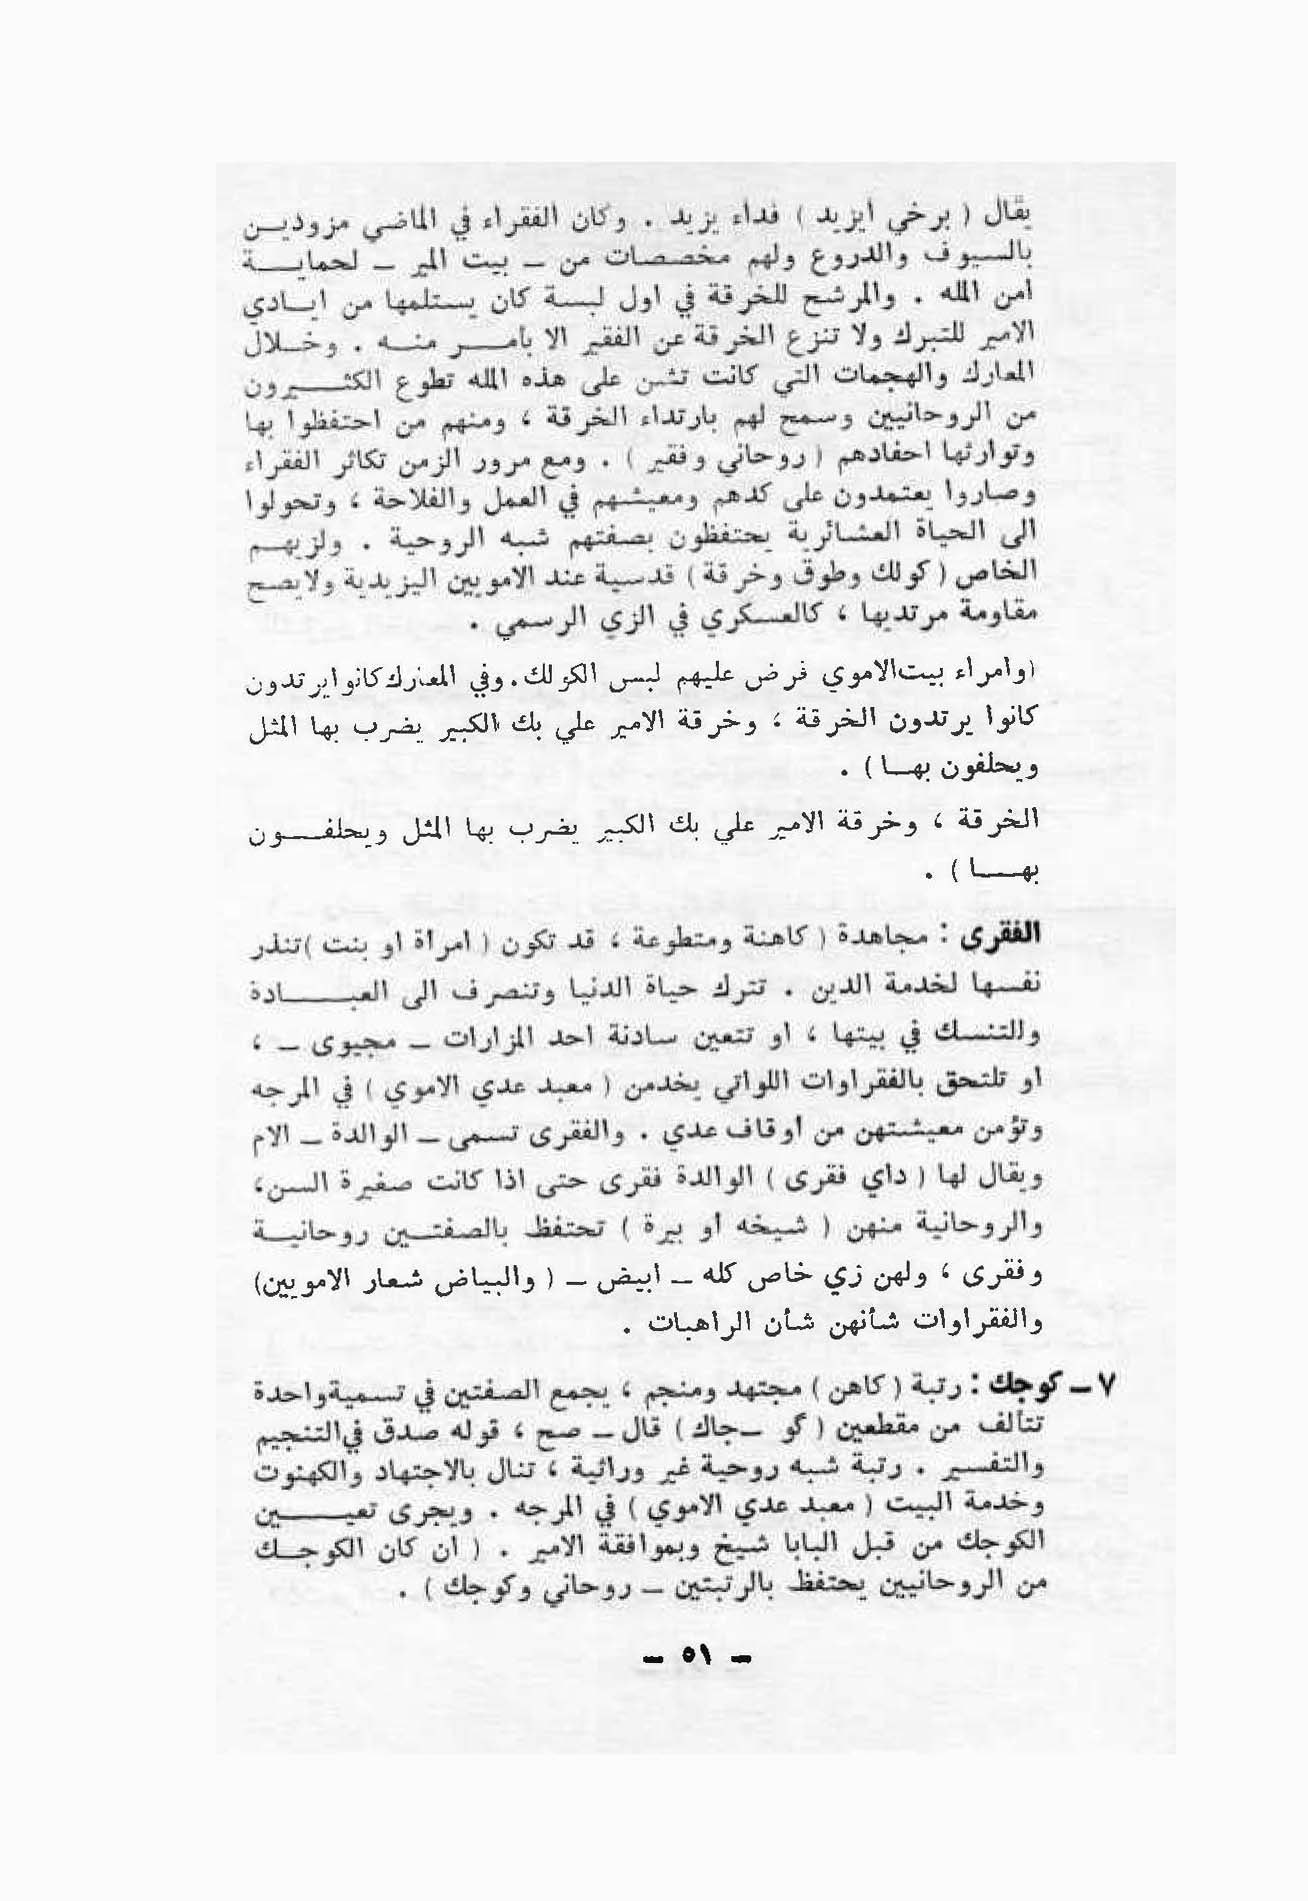 يقال ( برخي ايزيد ) فداء يزيد . وكان الفقراء في الماضي مزودين
بالسيوف والدروع ولهم مخصصات من ــ بيت المير ــ لحماية
امن المله . والمرشح للخرقة في اول لبسة كان يستلمها من ايادي
الامير للتبرك ولا تنزع الخرقة عن الفقير الا بأمر منه . وخلال
المعارك والهجمات التي كانت تشن على هذه المله تطوع الكثيرون
من الروحانيين وسمح لهم بارتداء الخرقة ، ومنهم من احتفظوا بها
وتوارثها احفادهم ( روحاني وفقير ) . ومع مرور الزمن تكاثر الفقراء
وصاروا يعتمدون على كدهم ومعيشهم في العمل والفلاحة ، وتحولوا
الى الحياة العشائرية يحتفظون بصفتهم شبه الروحية . ولزيهم
الخاص ( كولك وطوق وخرقة ) قدسية عند الامويين اليزيدية ولايصح
مقاومة مرتديها ، كالعسكري في الزي الرسمي .
(وامراء بيت الاموي فرض عليهم لبس الكولك. وفي المعارك كانوا يرتدون
كانوا يرتدون الخرقة ، وخرقة الامير علي بك الكبير يضرب بها المثل
ويحلفون بها ) .
الخرقة ، وخرقة الامير علي بك الكبير يضرب بها المثل ويحلفون
بها ) .
الفقرى : مجاهدة ( كاهنة ومتطوعة ، قد تكون ( امرأة او بنت )تنذر
نفسها لخدمة الدين . تترك حياة الدنيا وتنصرف الى العبادة
وللتنسك في بيتها ، او تتعين سادنة احد المزارات ــ مجيوى ــ ،
او تلتحق بالفقراوات اللواتي يخدمن ( معبد عدي الاموي ) في المرجه
وتؤمن معيشتهن من اوقاف عدي . والفقرى تسمى ــ الوالدة ــ الام
ويقال لها ( داي فقرى ) الوالدة فقرى حتى اذا كانت صغيرة السن،
والروحانية منهن ( شيخه او بيرة ) تحتفظ بالصفتين روحانية
وفقرى ، ولهن زي خاص كله ــ ابيض ــ ( والبياض شعار الامويين)
والفقراوات شأنهن شأن الراهبات .
٧ ــ كوجك : رتبة ( كاهن ) مجتهد ومنجم ، يجمع الصفتين في تسمية واحدة
تتألف من مقطعين ( گو ــ جاك ) قال ــ صح ، قوله صدق في التنجيم
والتفسير . رتبة شبه روحية غير وراثية ، تنال بالاجتهاد والكهنوت
وخدمة البيت ( معبد عدي الاموي ) في المرجه . ويجرى تعيين
الكوجك من قبل البابا شيخ وبموافقة الامير . ( ان كان الكوجك
من الروحانيين يحتفظ بالرتبتين ــ روحاني وكوجك ) .
ــ ٥١ ــ